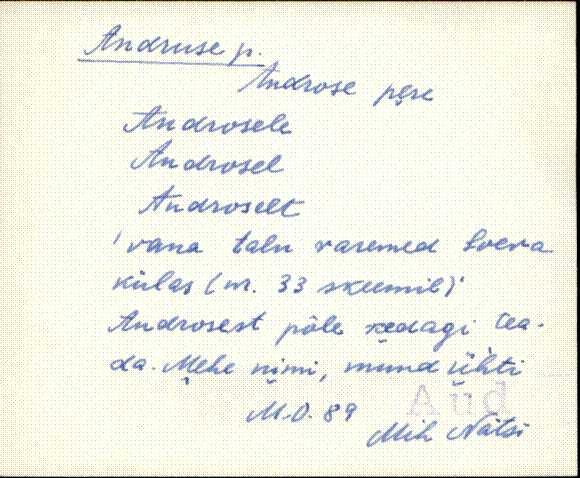 Andruse p.
Androse pęre
Androsele
Androsel
Androselt
'vana talu varemed Soeva
külas (nr. 33 skeemil)'
Androsest põle kedagi tea-
da. Mehe nimi, muud ühti
M.O. 89
Aud
Mih Nätsi